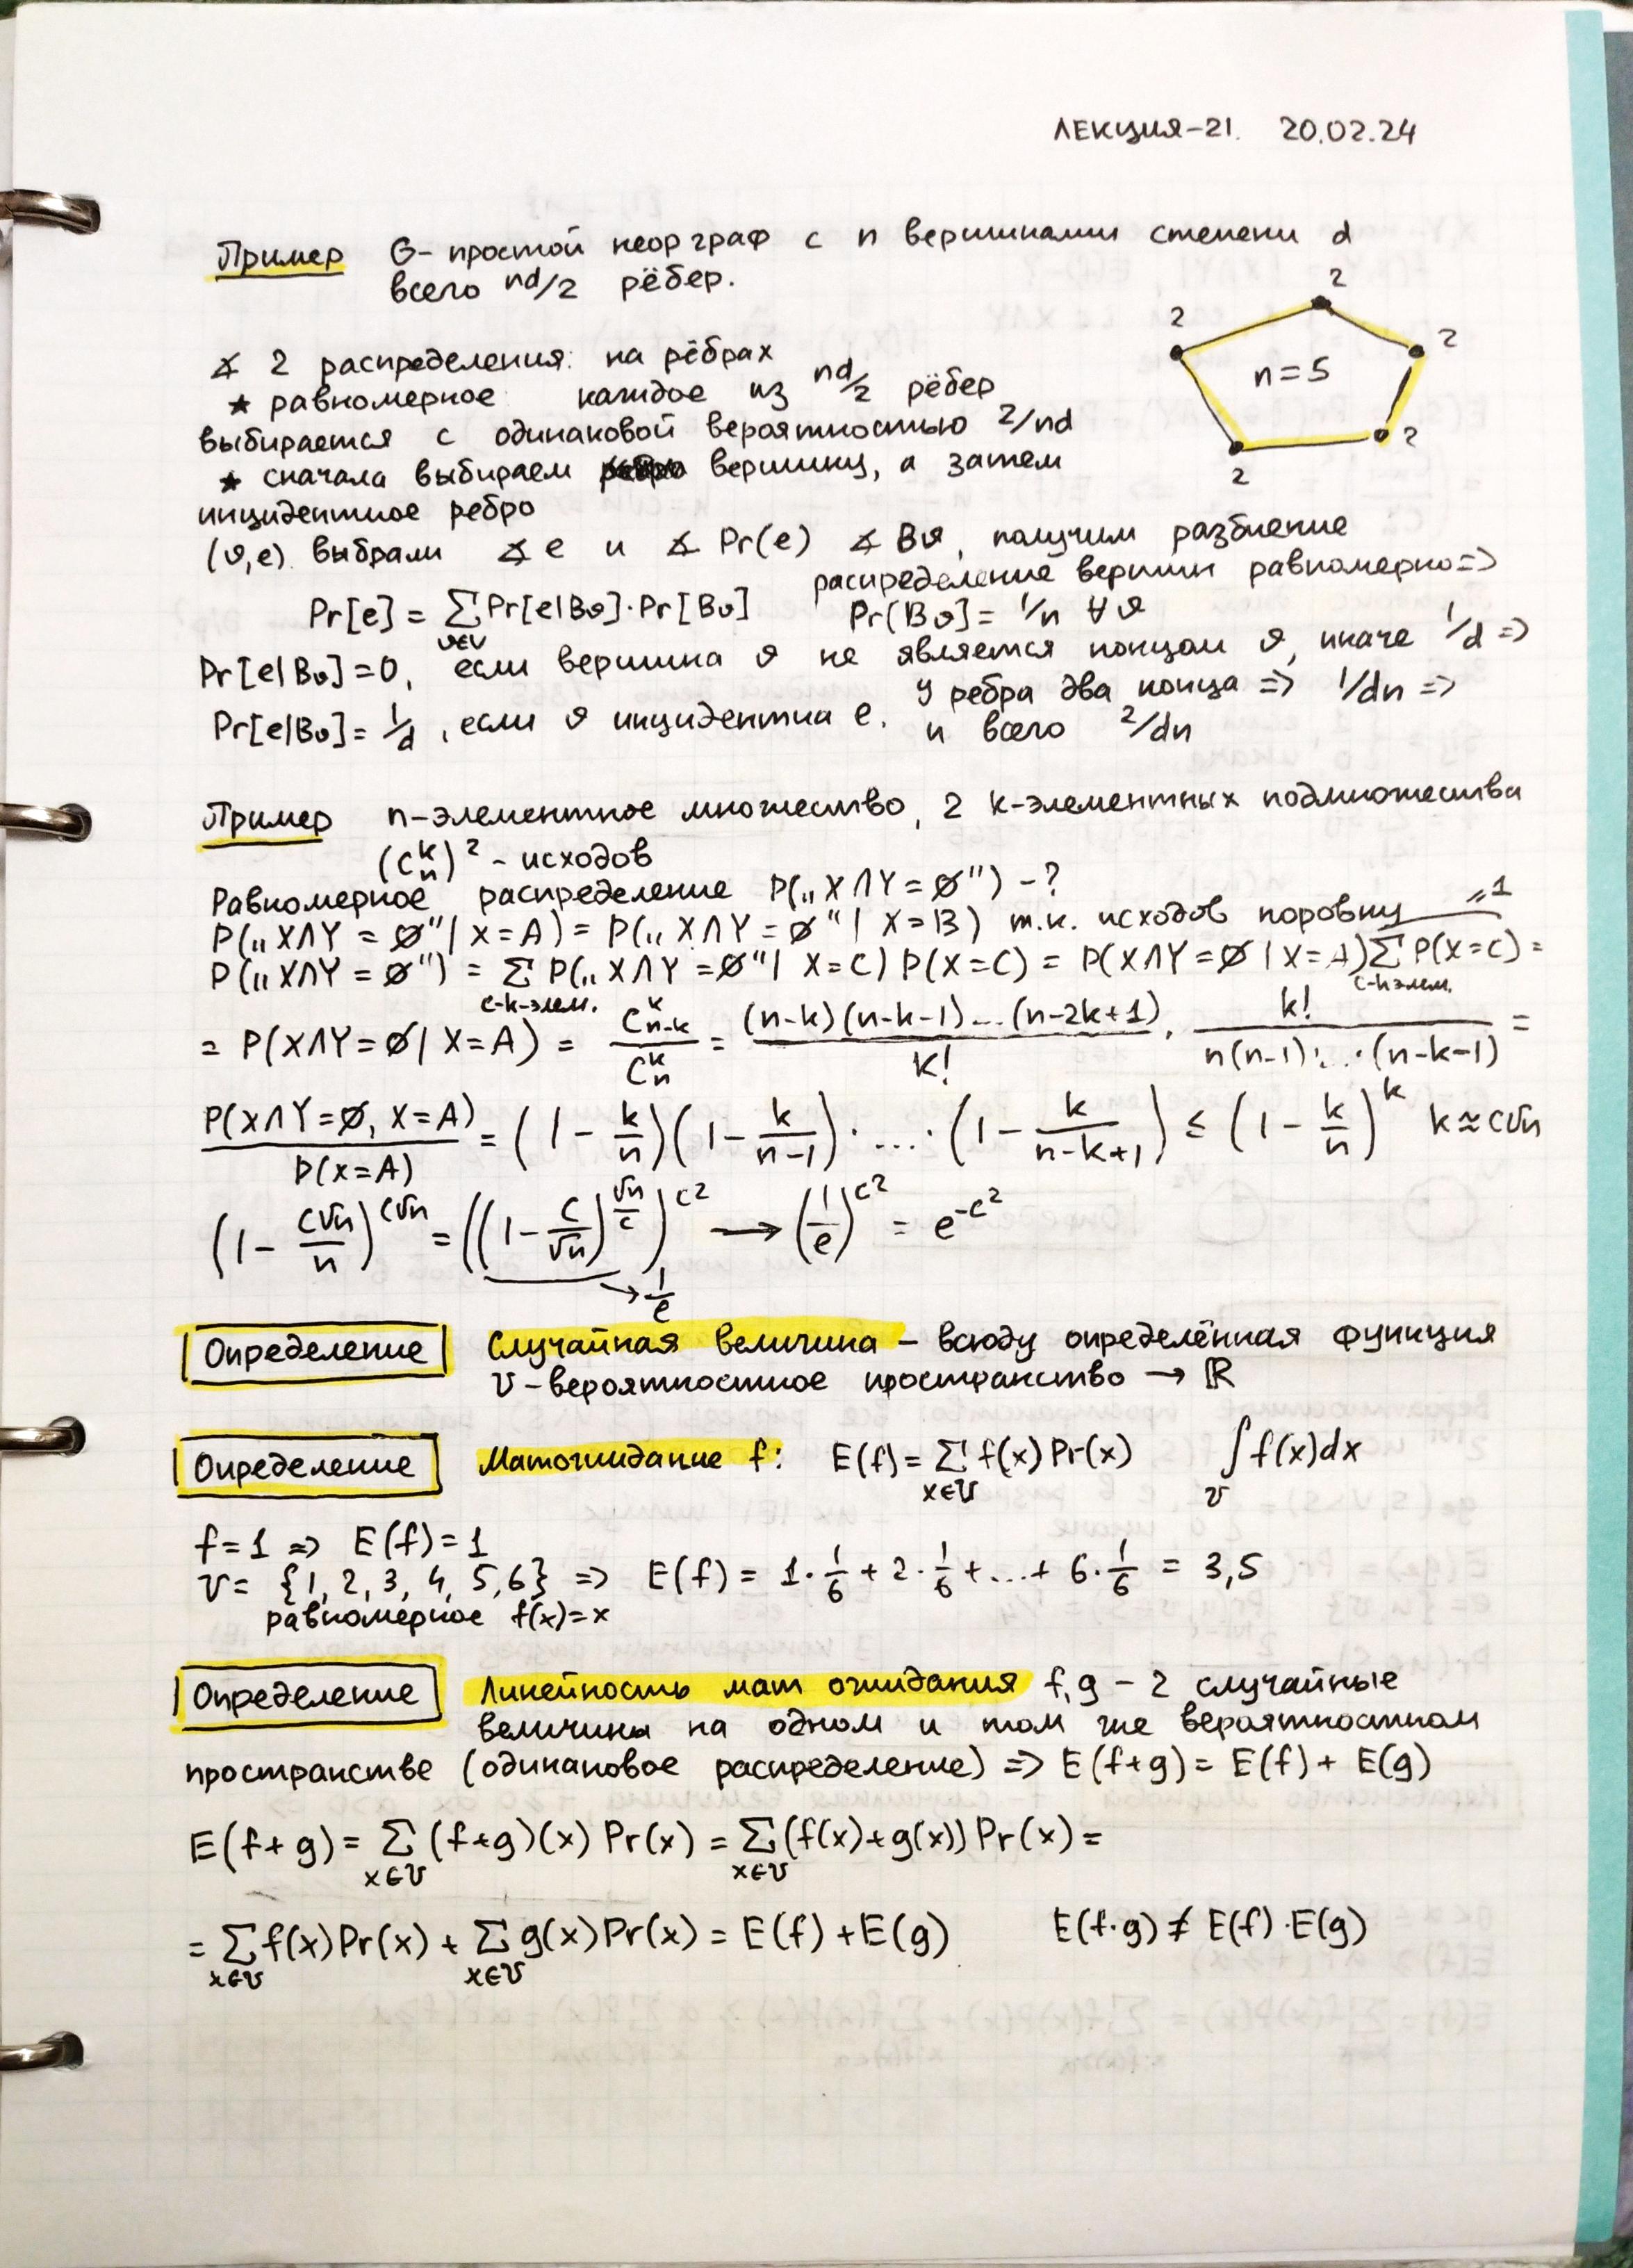 ЛЕКЦИЯ-21. 20.02.24
Пример G- простой неор граф с n вершинами степени d
всего nd/2 рёбер.
2
2
2
n=5
2
2
∡ 2 распределения: на рёбрах
★ равномерное каждое из nd/2 рёбер
выбирается с одинаковой вероятностью 2/nd
★ сначала выбираем вершину, а затем
инцидентное ребро
(v,e) выбрали ∡ e и ∡ Pr(e) ∡ Bv, получим разбиение
распределение вершин равномерно=>
Pr[e] = ∑ Pr[e|Bv]·Pr[Bv] Pr(Bv]= 1/n ∀v
v∈V
Pr[e|Bv]=0, если вершина v не является концом v, иначе 1/d =>
У ребра два конца => 1/dn =>
Pr[e|Bv]= 1/d, если v инцидентна e. и всего 2/dn
Пример n-элементное множество, 2 k-элементных подмножества
(C_n^k)^2 - исходов
Равномерное распределение P(„X∩Y=∅") -?
P(„X∩Y = ∅"| X=A) = P(„X∩Y = ∅"| X=B) т.к. исходов поровну =1
P(„X∩Y = ∅") = ∑ P(„X∩Y=∅"| X=C) P(X=C) = P(X∩Y=∅ | X=A)∑ P(X=C) =
C-k-элем. C-k элем.
= P(X∩Y=∅| X=A) = C_{n-k}^k / C_n^k = (n-k)(n-k-1)...(n-2k+1) / k! · k! / n(n-1)·...·(n-k-1) =
P(X∩Y=∅, X=A) / P(X=A) = (1 - k/n)(1 - k/(n-1))·...·(1 - k/(n-k+1)) ≤ (1 - k/n)^k k≈c√n
(1 - c√n/n)^{c√n} = ((1 - c/√n)^{√n/c})^{c^2} → (1/e)^{c^2} = e^{-c^2}
→ 1/e
Определение Случайная величина - всюду определённая функция
U-вероятностное пространство → ℝ
Определение Матожидание f: E(f) = ∑ f(x) Pr(x) ∫ f(x)dx
x∈U U
f=1 => E(f)=1
U= {1, 2, 3, 4, 5, 6} => E(f) = 1·1/6 + 2·1/6 +...+ 6·1/6 = 3,5
равномерное f(x)=x
Определение Линейность мат ожидания f,g - 2 случайные
величины на одном и том же вероятностном
пространстве (одинаковое распределение) => E(f+g)= E(f) + E(g)
E(f+g) = ∑ (f+g)(x) Pr(x) = ∑ (f(x)+g(x)) Pr(x) =
x∈U x∈U
= ∑ f(x)Pr(x) + ∑ g(x)Pr(x) = E(f) +E(g) E(f·g) ≠ E(f)·E(g)
x∈U x∈U